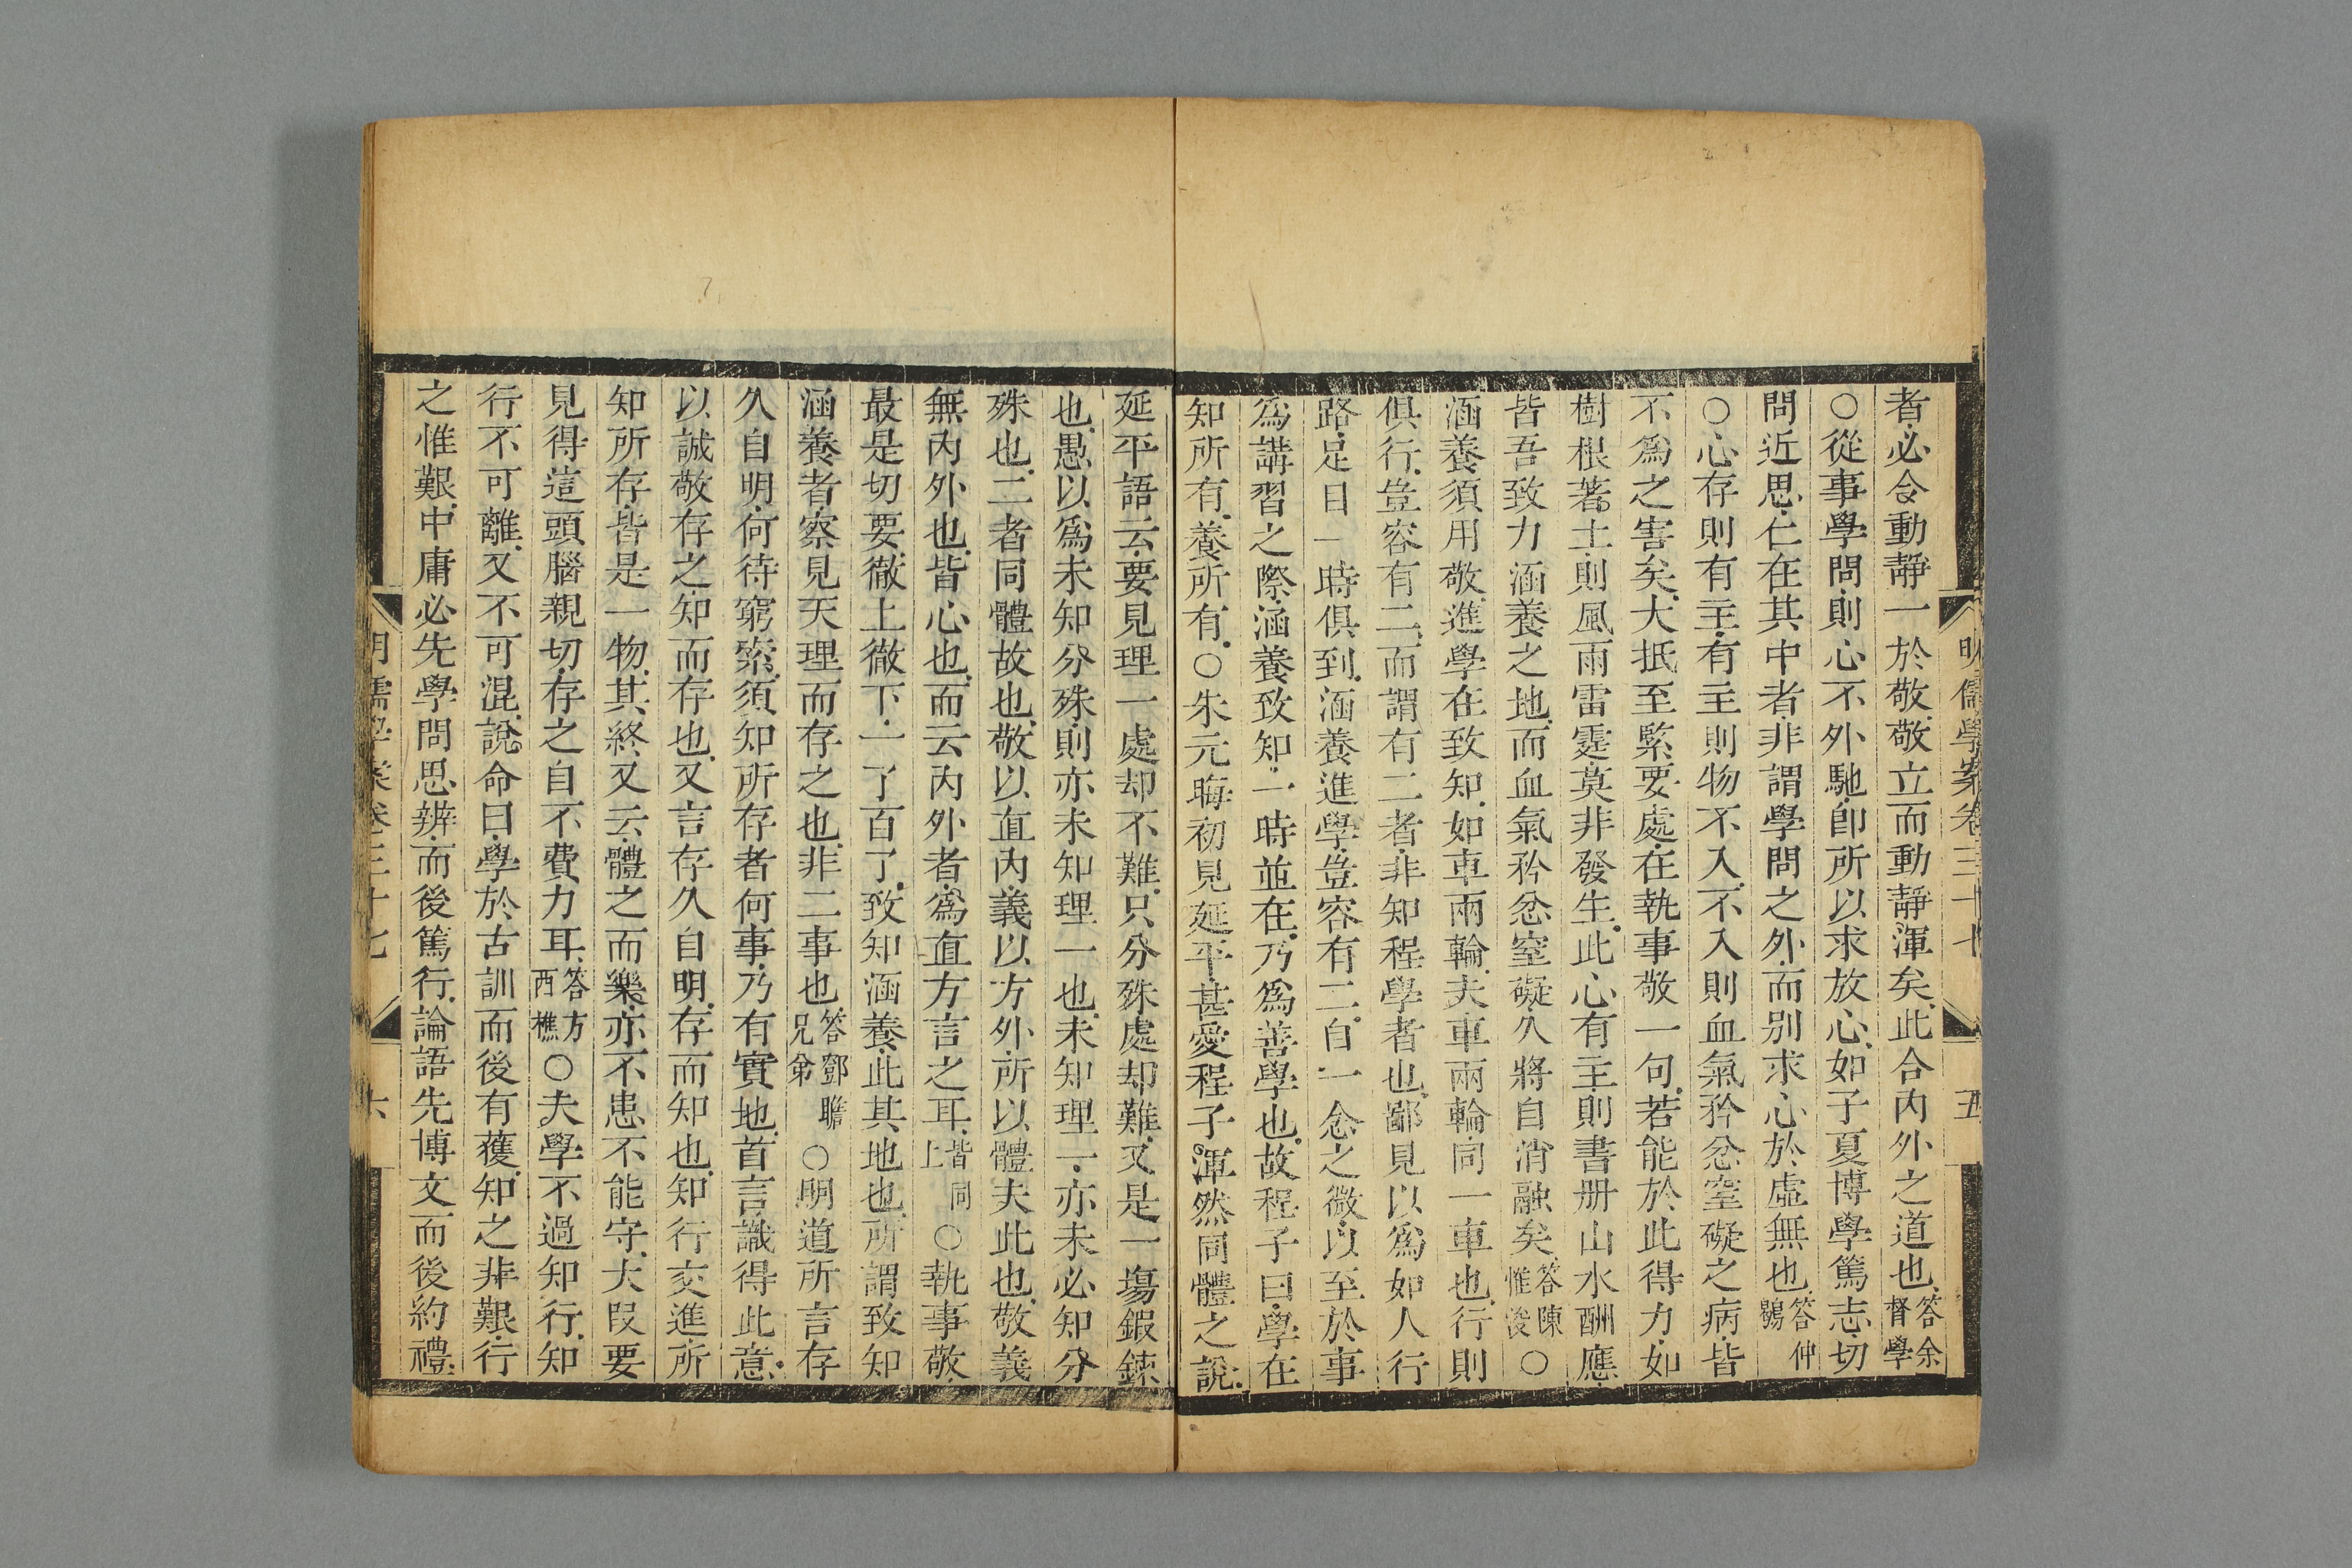 明儒學案卷三十七 五
者必令動靜一於敬敬立而動靜渾矣此合內外之道也答余督學
○從事學問則心不外馳卽所以求放心如子夏博學篤志切
問近思仁在其中者非謂學問之外而別求心於虛無也答仲鶡
○心存則有主有主則物不入不入則血氣矜忿窒礙之病皆
不爲之害矣大抵至緊要處在執事敬一句若能於此得力如
樹根著土則風雨雷霆莫非發生此心有主則書册山水酬應
皆吾致力涵養之地而血氣矜忿窒礙久將自消融矣答陳惟浚○
涵養須用敬進學在致知如車兩輪夫車兩輪同一車也行則
俱行豈容有二而謂有二者非知程學者也鄙見以爲如人行
路足目一時俱到涵養進學豈容有二自一念之微以至於事
爲講習之際涵養致知一時並在乃爲善學也故程子曰學在
知所有養所有○朱元晦初見延平甚愛程子渾然同體之說
延平語云要見理一處却不難只分殊處却難又是一塲鍜鍊
也愚以爲未知分殊則亦未知理一也未知理一亦未必知分
殊也二者同體故也敬以直內義以方外所以體夫此也敬義
無內外也皆心也而云內外者爲直方言之耳皆同上○執事敬
最是切要徹上徹下一了百了致知涵養此其地也所謂致知
涵養者察見天理而存之也非二事也答鄧瞻兄弟○明道所言存
久自明何待窮索須知所存者何事乃有實地首言識得此意
以誠敬存之知而存也又言存久自明存而知也知行交進所
知所存皆是一物其終又云體之而樂亦不患不能守大段要
見得這頭腦親切存之自不費力耳答方西樵○夫學不過知行知
行不可離又不可混說命曰學於古訓而後有獲知之非艱行
之惟艱中庸必先學問思辨而後篤行論語先博文而後約禮
明儒學案卷三十七 六